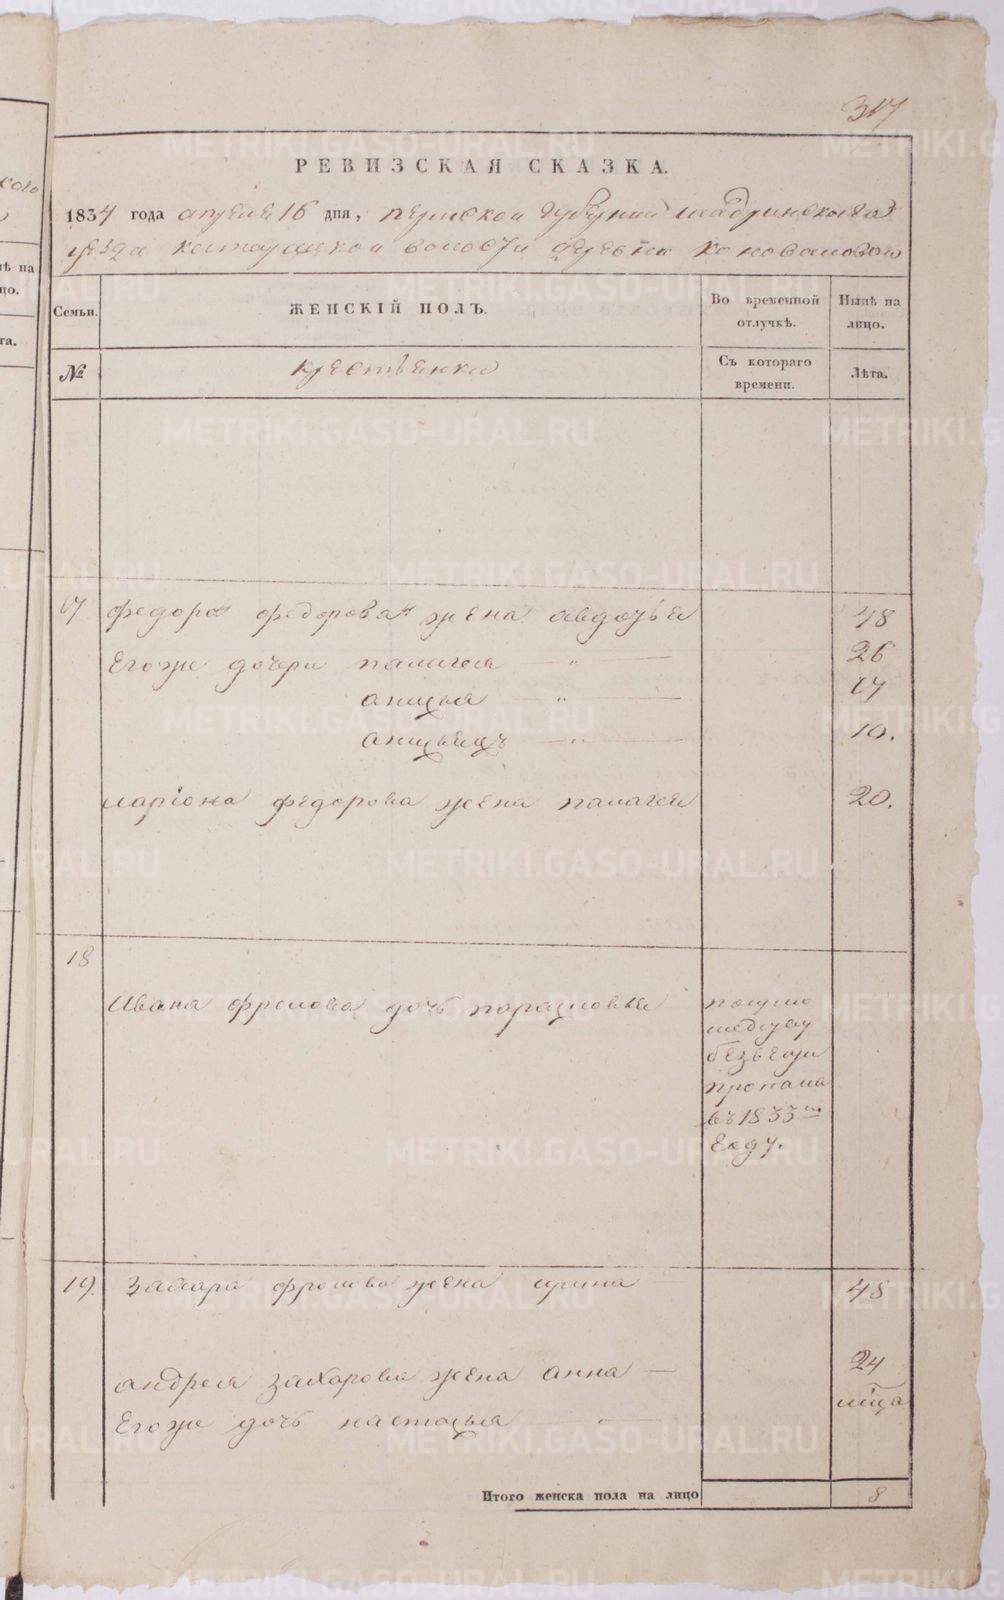 317
РЕВИЗСКАЯ СКАЗКА.
1834 года апреля 16 дня, пермской губернии шадринскаго
уезда волости деревни коноваловой
Семьи.
ЖЕНСКІЙ ПОЛЪ.
Во временной отлучкѣ.
Нынѣ на лицо.
№
крестьянки
Съ котораго времени.
Лѣта.
17 федора федорова жена авдотья 48
Егоже дочери палагея — " — 26
анисья — " — 17
— " — 10.
лариона федорова жена палагея 20.
18
Ивана фролова дочь парасковья
безвести
пропала
въ 1833 м
году.
19. Захара фролова жена ирина 48
андрея захарова жена анна — 24
Егоже дочь настасья —
Итого женска пола на лицо 8
METRIKI.GASO-URAL.RU